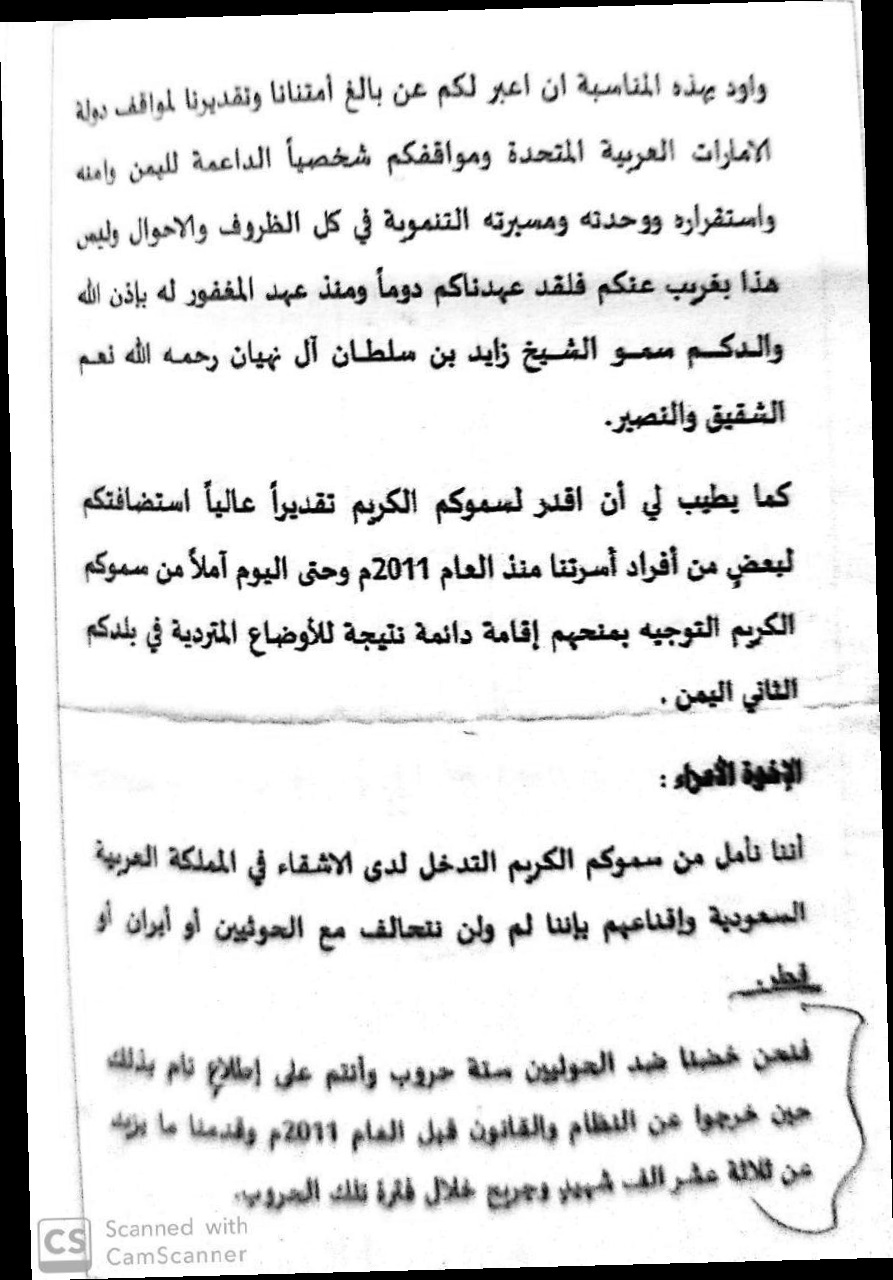 واود بهذه المناسبة ان اعبر لكم عن بالغ أمتنانا وتقديرنا لمواقف دولة
الامارات العربية المتحدة ومواقفكم شخصياً الداعمة لليمن وامنه
واستقراره ووحدته ومسيرته التنموية في كل الظروف والاحوال وليس
هذا بغريب عنكم فلقد عهدناكم دوماً ومنذ عهد المغفور له بإذن الله
والدكم سمو الشيخ زايد بن سلطان آل نهيان رحمه الله نعم
الشقيق والنصير.
كما يطيب لي أن اقدر لسموكم الكريم تقديراً عالياً استضافتكم
لبعضٍ من أفراد أسرتنا منذ العام 2011م وحتى اليوم آملاً من سموكم
الكريم التوجيه بمنحهم إقامة دائمة نتيجة للأوضاع المتردية في بلدكم
الثاني اليمن .
الإخوة الأعزاء :
أننا نأمل من سموكم الكريم التدخل لدى الاشقاء في المملكة العربية
السعودية وإقناعهم بإننا لم ولن نتحالف مع الحوثيين أو أيران أو
قطر.
فنحن خضنا ضد الحوثيين ستة حروب وأنتم على إطلاعٍ تام بذلك
حين خرجوا عن النظام والقانون قبل العام 2011م وقدمنا ما يزيد
عن ثلاثة عشر الف شهيدٍ وجريح خلال فترة تلك الحروب.
CS Scanned with
CamScanner